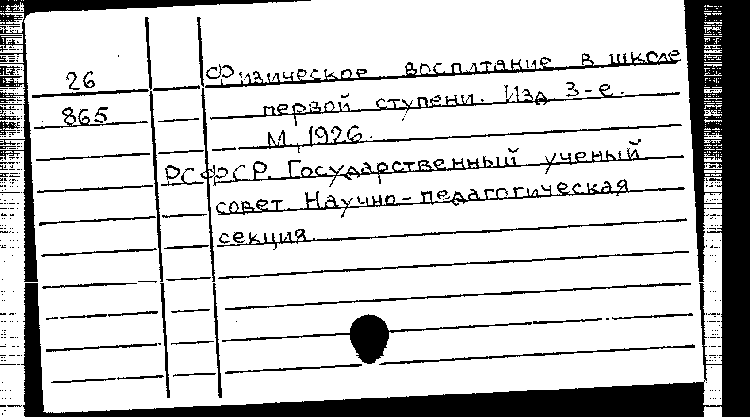 26 Физическое воспитание в школе
865 первой ступени. Изд 3-е.
М., 1926.
РСФСР. Государственный ученый
совет. Научно-педагогическая
секция.